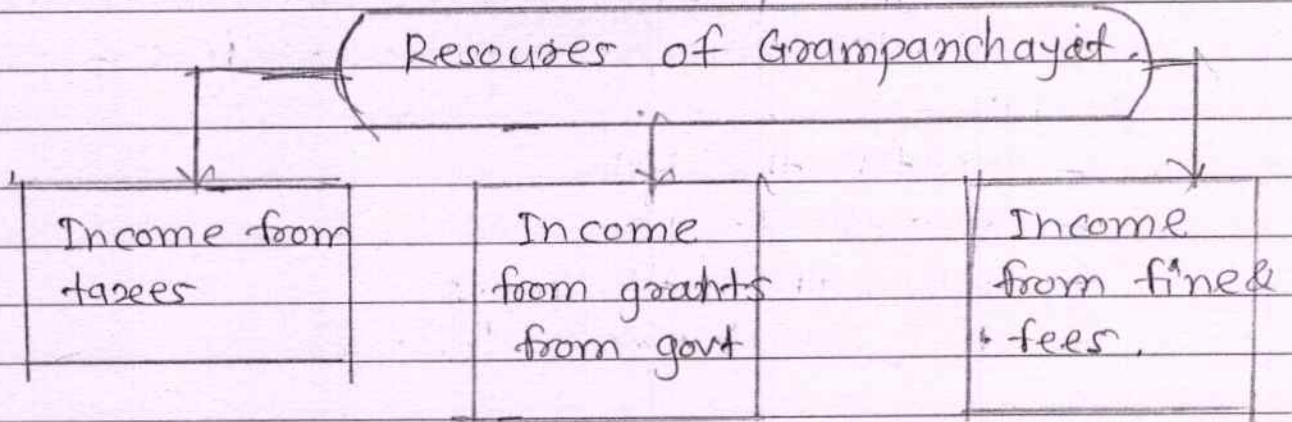 Resoures of Grampanchayat.
Income from
taxees
Income
from grants
from govt
Income
from fine &
fees.